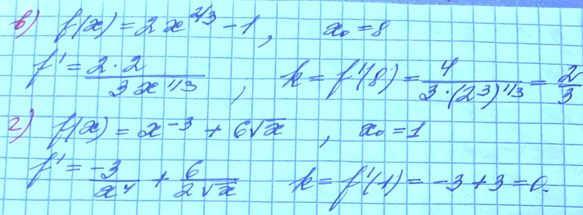 в) f(x) = 2x^{2/3} - 1, x₀ = 8
f' = \frac{2·2}{3x^{1/3}}; k = f'(8) = \frac{4}{3·(2³)^{1/3}} = \frac{2}{3}
г) f(x) = x^{-3} + 6√x, x₀ = 1
f' = \frac{-3}{x⁴} + \frac{6}{2√x} k = f'(1) = -3 + 3 = 0.